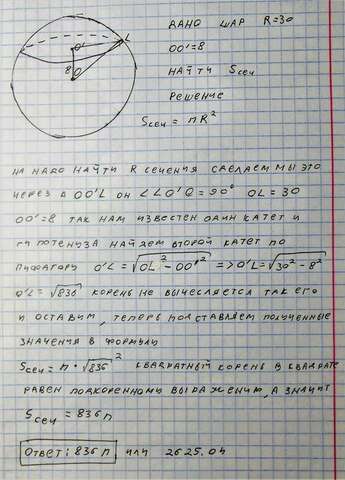 O' L
8
O
ДАНО ШАР R=30
OO'=8
НАЙТИ Sсеч
РЕШЕНИЕ
Sсеч = πR²
НА НАДО НАЙТИ R СЕЧЕНИЯ СДЕЛАЕМ МЫ ЭТО
ЧЕРЕЗ Δ OO'L ОН ∠LO'O = 90° OL = 30
OO'=8 ТАК НАМ ИЗВЕСТЕН ОДИН КАТЕТ И
ГИПОТЕНУЗА НАЙДЕМ ВТОРОЙ КАТЕТ ПО
ПИФАГОРУ O'L = √OL² - OO'² => O'L = √30² - 8²
O'L = √836 КОРЕНЬ НЕ ВЫЧЕСЛЯЕТСЯ ТАК ЕГО
И ОСТАВИМ, ТЕПЕРЬ ПОДСТАВЛЯЕМ ПОЛУЧЕННЫЕ
ЗНАЧЕНИЯ В ФОРМУЛУ
Sсеч = π · √836² КВАДРАТНЫЙ КОРЕНЬ В КВАДРАТЕ
РАВЕН ПОДКОРЕННОМУ ВЫРАЖЕНИЮ, А ЗНАЧИТ
Sсеч = 836π
ОТВЕТ: 836π ИЛИ 2625.04